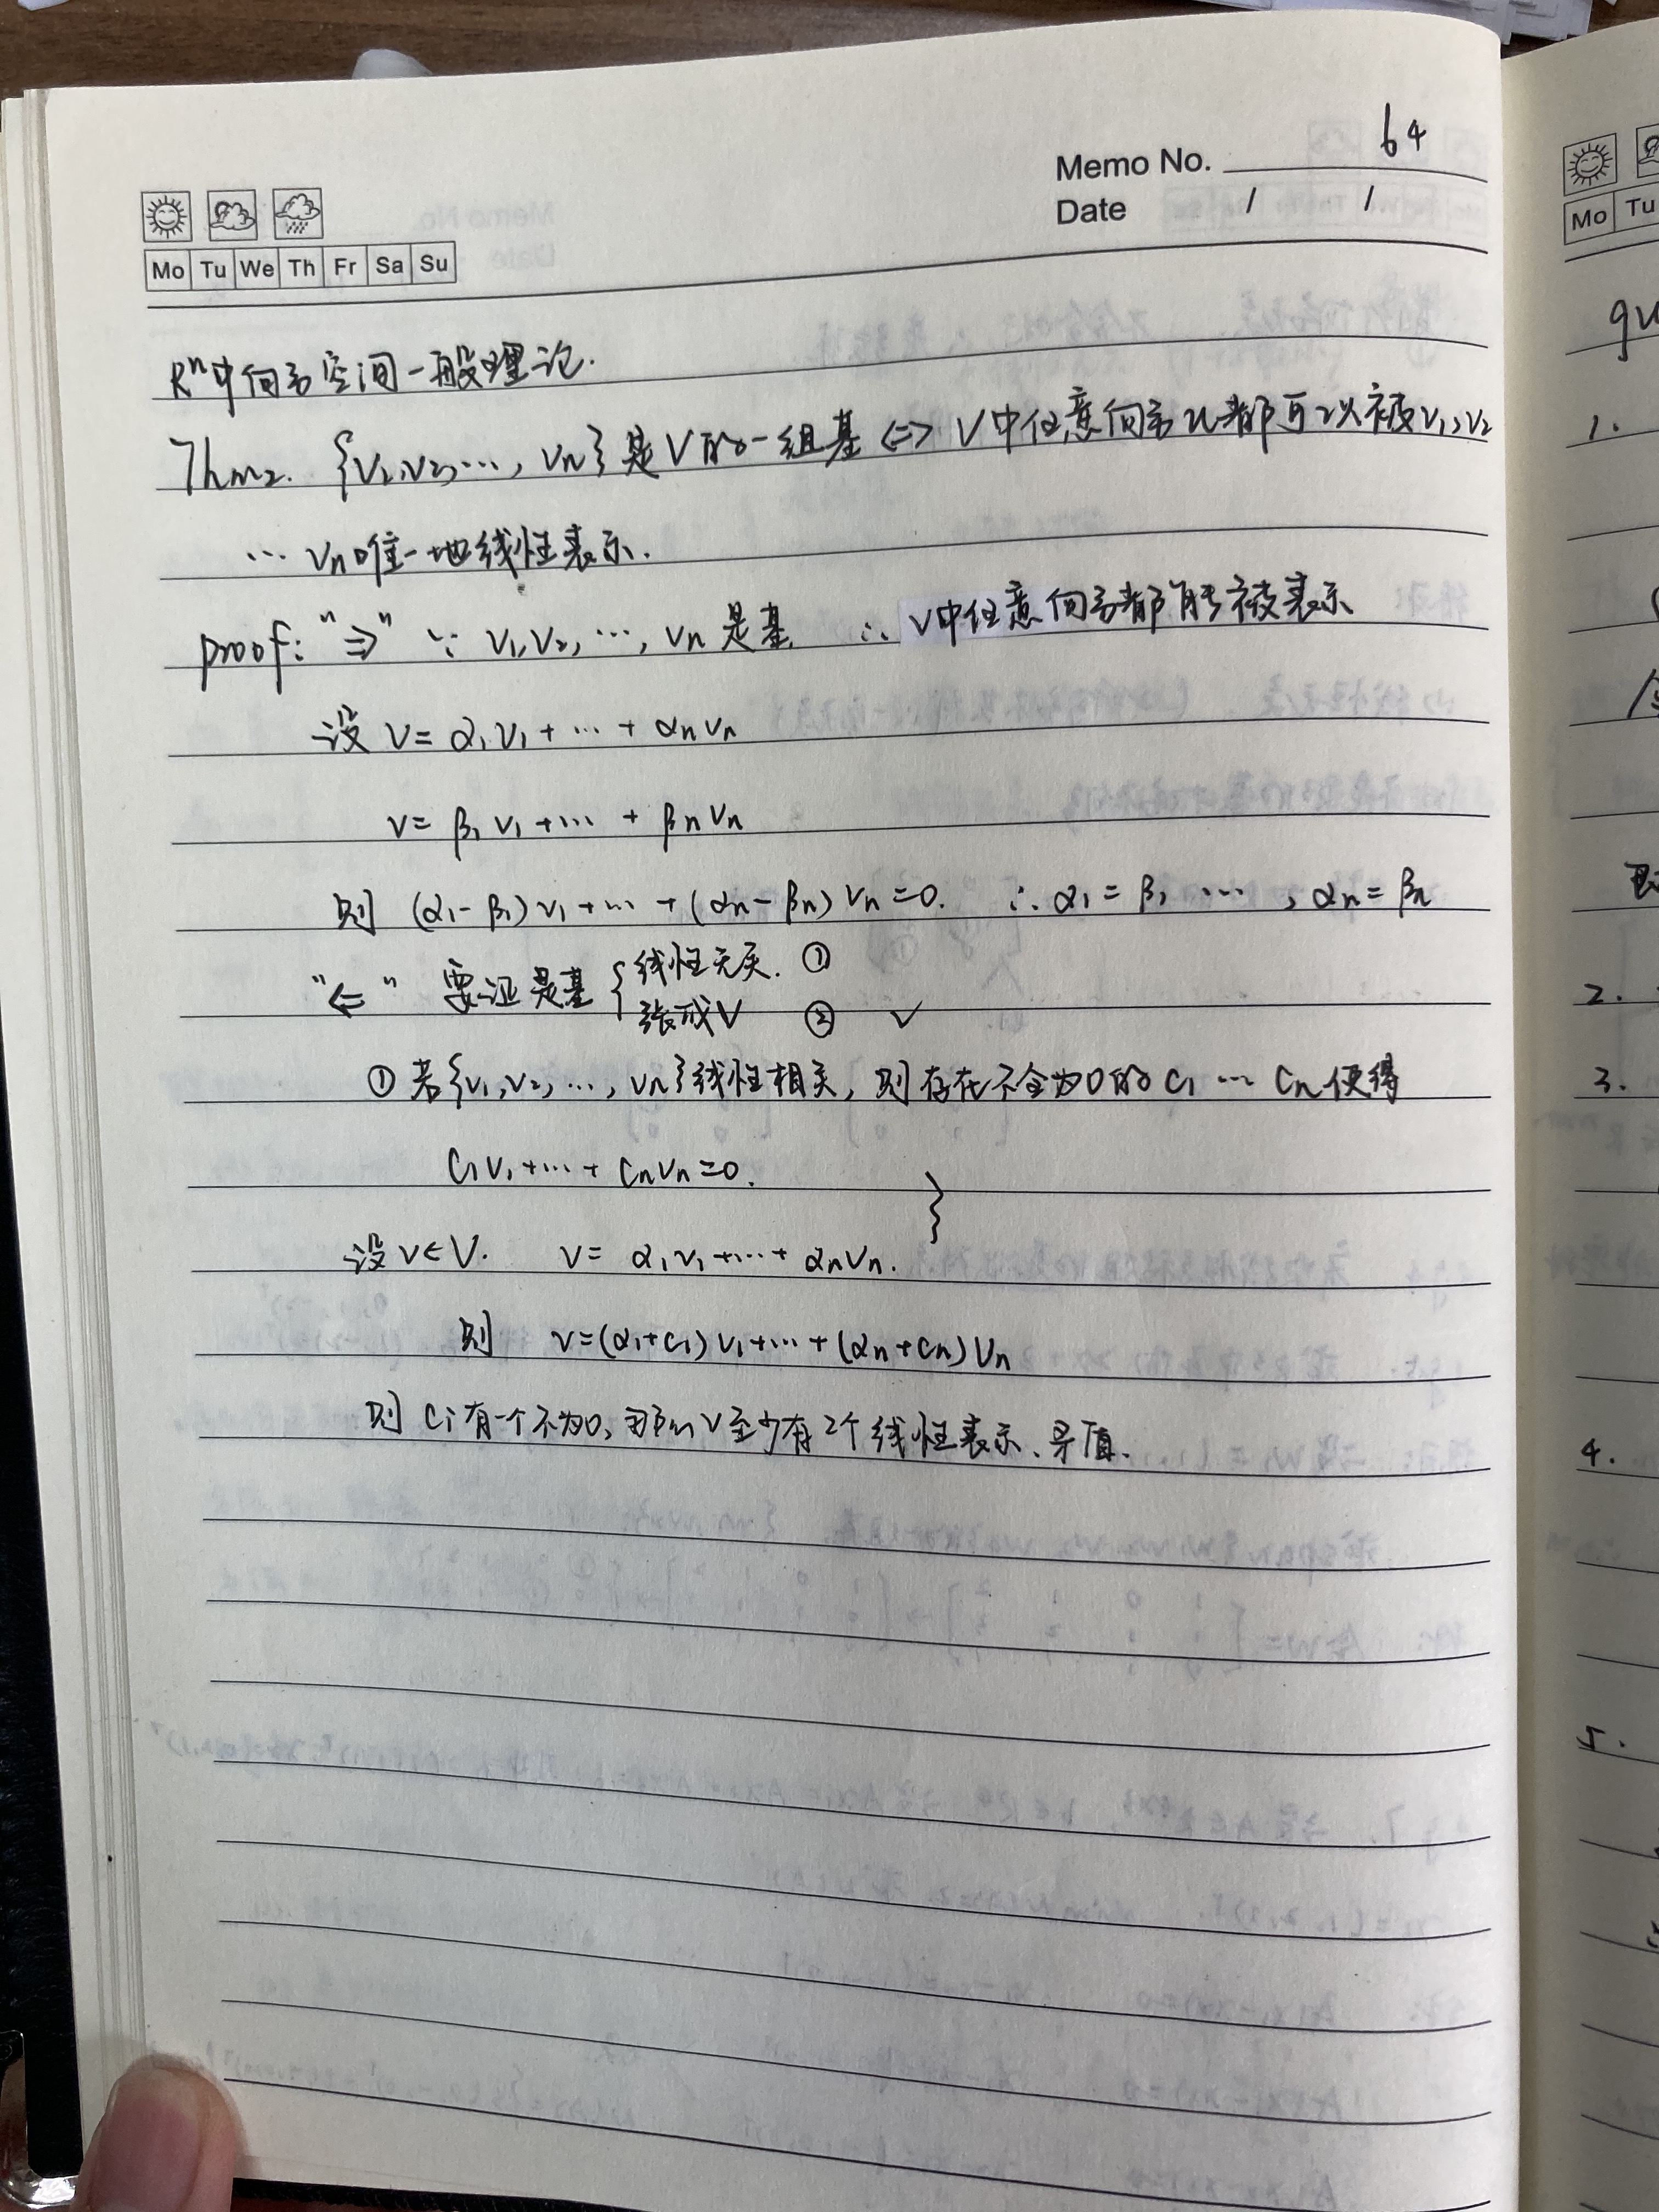 64
Memo No.
Date / /
Mo Tu We Th Fr Sa Su
Rⁿ中向量空间一般理论.
Thm2. {v₁,v₂,…, vn}是V的一组基 ⇔ V中任意向量都可以被v₁,v₂
… vn唯一地线性表示.
proof: "⇒" ∵ v₁,v₂,…, vn 是基. ∴ V中任意向量都能被表示
设 v = α₁v₁ + … + αnvn
v = β₁v₁ + … + βnvn
则 (α₁-β₁)v₁ + … + (αn-βn)vn = 0. ∴ α₁ = β₁ … , αn = βn
"⇐" 要证是基 { 线性无关. ①
张成V ② ✓
① 若{v₁,v₂,…, vn}线性相关, 则存在不全为0的 c₁ … cn 使得
c₁v₁ + … + cnvn = 0.
设 v∈V. v = α₁v₁ + … + αnvn. }
则 v = (α₁+c₁)v₁ + … + (αn+cn)vn
则 ci有一个不为0, 那么v至少有2个线性表示、矛盾.
Mo Tu
1.
2.
3.
4.
5.